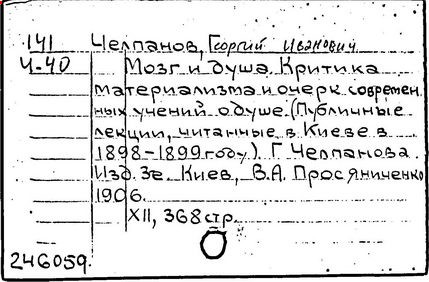 141 Челпанов, Георгий Иванович
Ч-40 Мозг и душа. Критика
материализма и очерк современ
ных учений о душе. (Публичные
лекции, читанные в Киеве в
1898-1899 году). Г. Челпанова.
Изд. 3е. Киев, В.А. Просяниченко
1906.
XII, 368 стр.
246059.